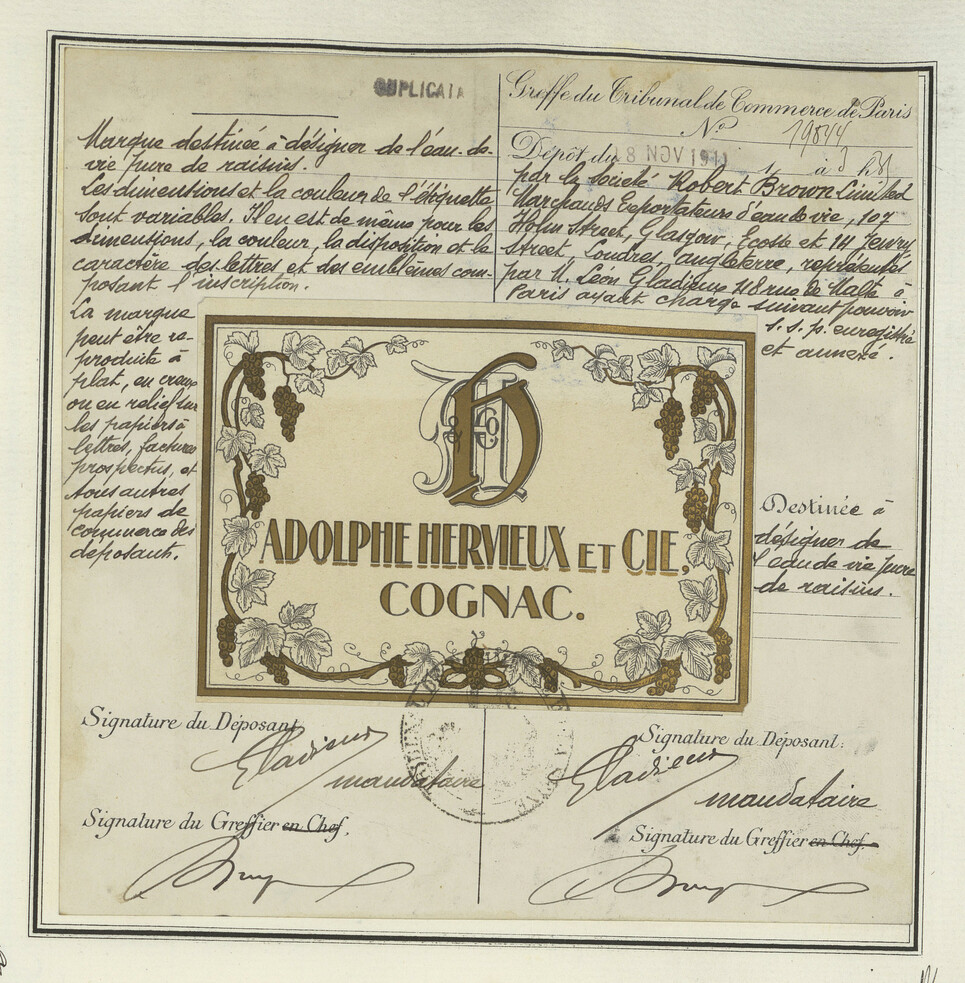 DUPLICATA
Marque destinée à désigner de l'eau-de-
vie pure de raisins.
Les dimensions et la couleur de l'étiquette
sont variables. Il en est de même pour les
dimensions, la couleur, la disposition et le
caractère des lettres et des emblèmes com-
posant l'inscription.
La marque
peut être re-
produite à
plat, en creux
ou en relief sur
les papiers à
lettres, factures
prospectus, et
tous autres
papiers de
commerce des
déposants.
Greffe du Tribunal de Commerce de Paris
No 19844
Dépôt du 18 NOV 1911 à 3 h
par la Société Robert Brown Limited
Marchands Exportateurs d'eau de vie, 107
Holm Street, Glasgow, Ecosse et 14 Jewry
Street, Londres, Angleterre, représentés
par M. Léon Gladieux 118 rue de Malte à
Paris ayant charge suivant pouvoir
s. s. p. enregistré
et annexé.
H
& Co.
ADOLPHE HERVIEUX ET CIE,
COGNAC.
Destinée à
désigner de
l'eau de vie pure
de raisins.
Signature du Déposant
Gladieux
mandataire
Signature du Greffier en Chef.
Signature du Déposant:
Gladieux
mandataire
Signature du Greffier en Chef.